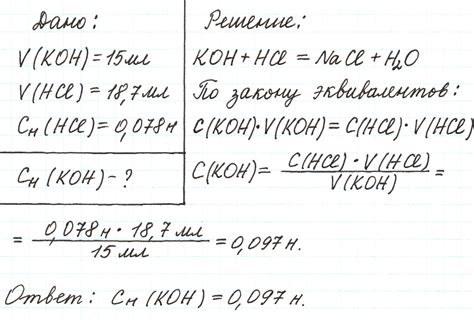 Дано:
V(KOH)=15мл
V(HCl)=18,7мл
Cн(HCl)=0,078н
Cн(KOH)-?
Решение:
KOH+HCl=NaCl+H₂O
По закону эквивалентов:
C(KOH)·V(KOH)=C(HCl)·V(HCl)
C(KOH)= C(HCl)·V(HCl) / V(KOH) =
= 0,078н·18,7мл / 15мл =0,097н.
Ответ: Cн(KOH)=0,097н.